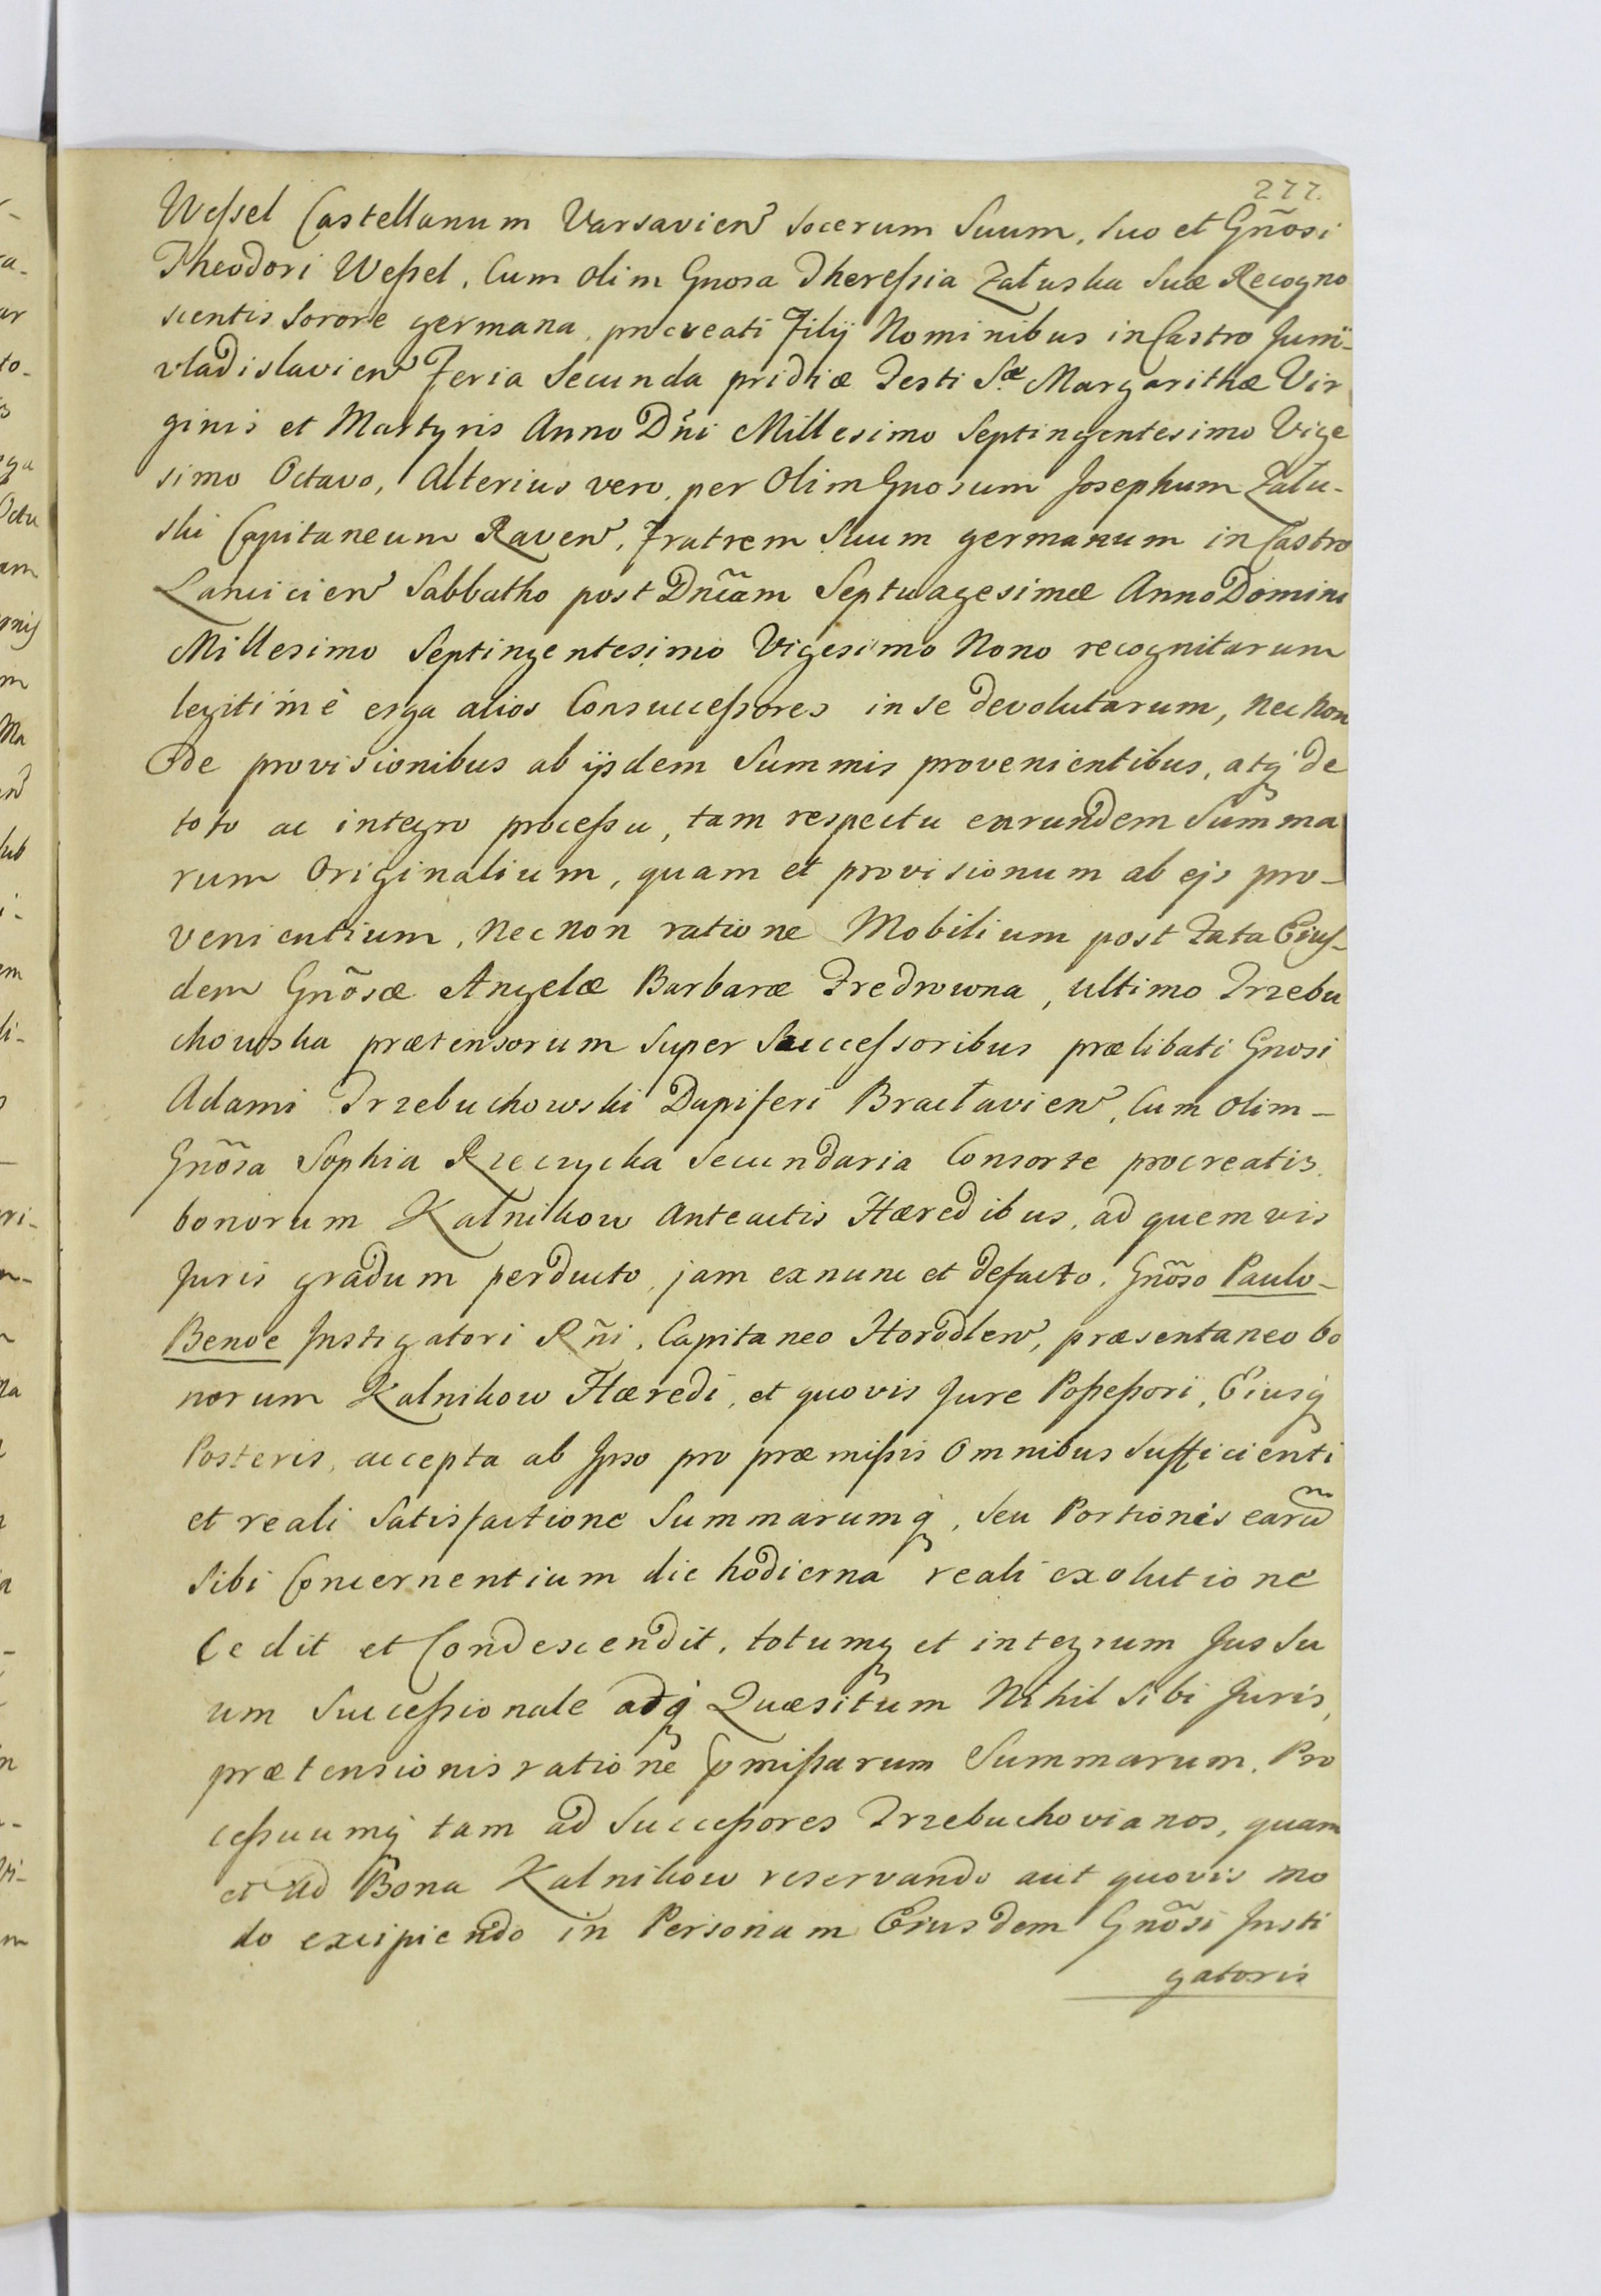 277.
Weſsel Castellanum Varsavien̄ Socerum Suum, Suo et Gn̄osi
Theodori Weſsel, Cum olim Gnosa Thereſsia Załuska Suæ Recogno
scentis Sorore germana, procreati Filij Nominibus in Castro Juni-
vladislavien̄ Feria Secunda pridiæ Festi Sæ Margarithæ Vir
ginis et Martyris Anno Dn̄i Millesimo Septingentesimo Vige
simo Octavo, Alterius vero, per Olim Gnosum Josephum Zału-
ski Capitaneum Raven̄, Fratrem Suum germanum in Castro
Lancicien̄ Sabbatho post Dn̄cam Septuagesimæ Anno Domini
Millesimo Septingentesimo Vigesimo Nono recognitarum
legitimè erga alios Consucceſsores in se devolutarum, nec non
de provisionibus ab ijsdem Summis provenientibus, atq́ de
toto ac integro proceſsu, tam respectu earundem Summa
rum Originalium, quam et provisionum ab ejs pro-
venientium, nec non ratione Mobilium post Fata Eiuſ-
dem Gn̄osæ Angelæ Barbaræ Fredrowna, ultimo Trzebu
chowska prætensorum Super Succeſsoribus prælibati Gnosi
Adami Trzebuchowski Dapiferi Bracłavien̄, Cum olim-
Gn̄osa Sophia Rzeczycka Secundaria Consorte procreatis
bonorum Kalnikow Anteactis Hæredibus, ad quemvis
Juris gradum perducto, jam ex nunc et defacto, Gn̄oso Paulo-
Benoe Instigatori Rn̄i, Capitaneo Horodlen̄, præsentaneo bo
norum Kalnikow Hæredi, et quovis Jure Poſseſsori, Eiusq́
Posteris, accepta ab Ipso pro præmiſsis Omnibus Sufficienti
et reali Satisfactione Summarumq́, Seu Portionis earū
Sibi Concernentium die hodierna reali exolutione
Cedit et Condescendit, totumq́ et integrum Jus Su
um Succeſsionale adq́ Quæsitum Nihil Sibi Juris,
prætensionis ratione p̄miſsarum Summarum, Pro
ceſsuumq́ tam ad Succeſsores Trzebuchovianos, quam
et ad Bona Kalnikow reservando aut quovis mo
do excipiendo in Personam Eiusdem Gn̄osi Insti
gatoris